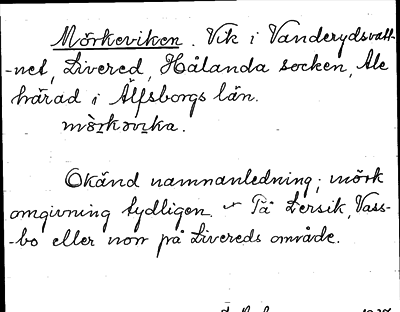 Mörkeviken. Vik i Vanderydsvatt-
-net, Livered, Hålanda socken, Ale
härad i Älfsborgs län.
mö̀rkəvɩka.
Okänd namnanledning; mörk
omgivning tydligen. Tå Lersik, Vass-
-bo eller norr på Livereds område.